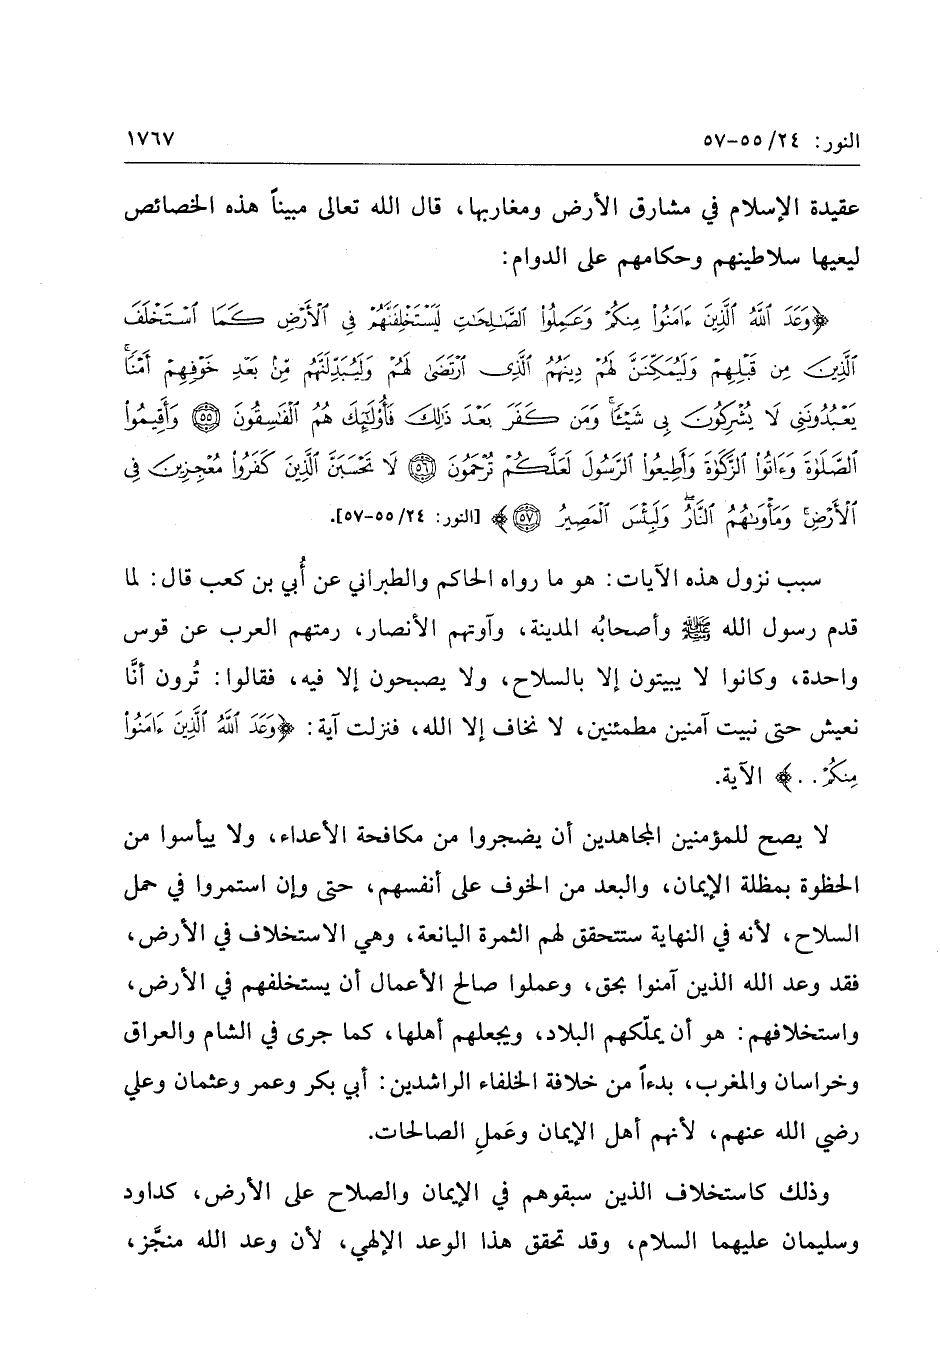 النور: ٢٤/ ٥٥-٥٧ ١٧٦٧
عقيدة الإسلام في مشارق الأرض ومغاربها، قال الله تعالى مبيناً هذه الخصائص
ليعيها سلاطينهم وحكامهم على الدوام:
﴿وَعَدَ ٱللَّهُ ٱلَّذِينَ ءَامَنُوا۟ مِنكُمْ وَعَمِلُوا۟ ٱلصَّـٰلِحَـٰتِ لَيَسْتَخْلِفَنَّهُمْ فِى ٱلْأَرْضِ كَمَا ٱسْتَخْلَفَ
ٱلَّذِينَ مِن قَبْلِهِمْ وَلَيُمَكِّنَنَّ لَهُمْ دِينَهُمُ ٱلَّذِى ٱرْتَضَىٰ لَهُمْ وَلَيُبَدِّلَنَّهُم مِّنۢ بَعْدِ خَوْفِهِمْ أَمْنًا ۚ
يَعْبُدُونَنِى لَا يُشْرِكُونَ بِى شَيْـًٔا ۚ وَمَن كَفَرَ بَعْدَ ذَٰلِكَ فَأُو۟لَـٰٓئِكَ هُمُ ٱلْفَـٰسِقُونَ ٥٥ وَأَقِيمُوا۟
ٱلصَّلَوٰةَ وَءَاتُوا۟ ٱلزَّكَوٰةَ وَأَطِيعُوا۟ ٱلرَّسُولَ لَعَلَّكُمْ تُرْحَمُونَ ٥٦ لَا تَحْسَبَنَّ ٱلَّذِينَ كَفَرُوا۟ مُعْجِزِينَ فِى
ٱلْأَرْضِ ۚ وَمَأْوَىٰهُمُ ٱلنَّارُ ۖ وَلَبِئْسَ ٱلْمَصِيرُ ٥٧﴾ [النور: ٢٤/ ٥٥-٥٧].
سبب نزول هذه الآيات: هو ما رواه الحاكم والطبراني عن أُبي بن كعب قال: لما
قدم رسول الله ﷺ وأصحابُه المدينة، وآوتهم الأنصار، رمتهم العرب عن قوس
واحدة، وكانوا لا يبيتون إلا بالسلاح، ولا يصبحون إلا فيه، فقالوا: تُرون أنَّا
نعيش حتى نبيت آمنين مطمئنين، لا نخاف إلا الله، فنزلت آية: ﴿وَعَدَ ٱللَّهُ ٱلَّذِينَ ءَامَنُوا۟
مِنكُمْ . . ﴾ الآية.
لا يصح للمؤمنين المجاهدين أن يضجروا من مكافحة الأعداء، ولا ييأسوا من
الحظوة بمظلة الإيمان، والبعد من الخوف على أنفسهم، حتى وإن استمروا في حمل
السلاح، لأنه في النهاية ستتحقق لهم الثمرة اليانعة، وهي الاستخلاف في الأرض،
فقد وعد الله الذين آمنوا بحق، وعملوا صالح الأعمال أن يستخلفهم في الأرض،
واستخلافهم: هو أن يملّكهم البلاد، ويجعلهم أهلها، كما جرى في الشام والعراق
وخراسان والمغرب، بدءاً من خلافة الخلفاء الراشدين: أبي بكر وعمر وعثمان وعلي
رضي الله عنهم، لأنهم أهل الإيمان وعَملِ الصالحات.
وذلك كاستخلاف الذين سبقوهم في الإيمان والصلاح على الأرض، كداود
وسليمان عليهما السلام، وقد تحقق هذا الوعد الإلهي، لأن وعد الله منجَّز،